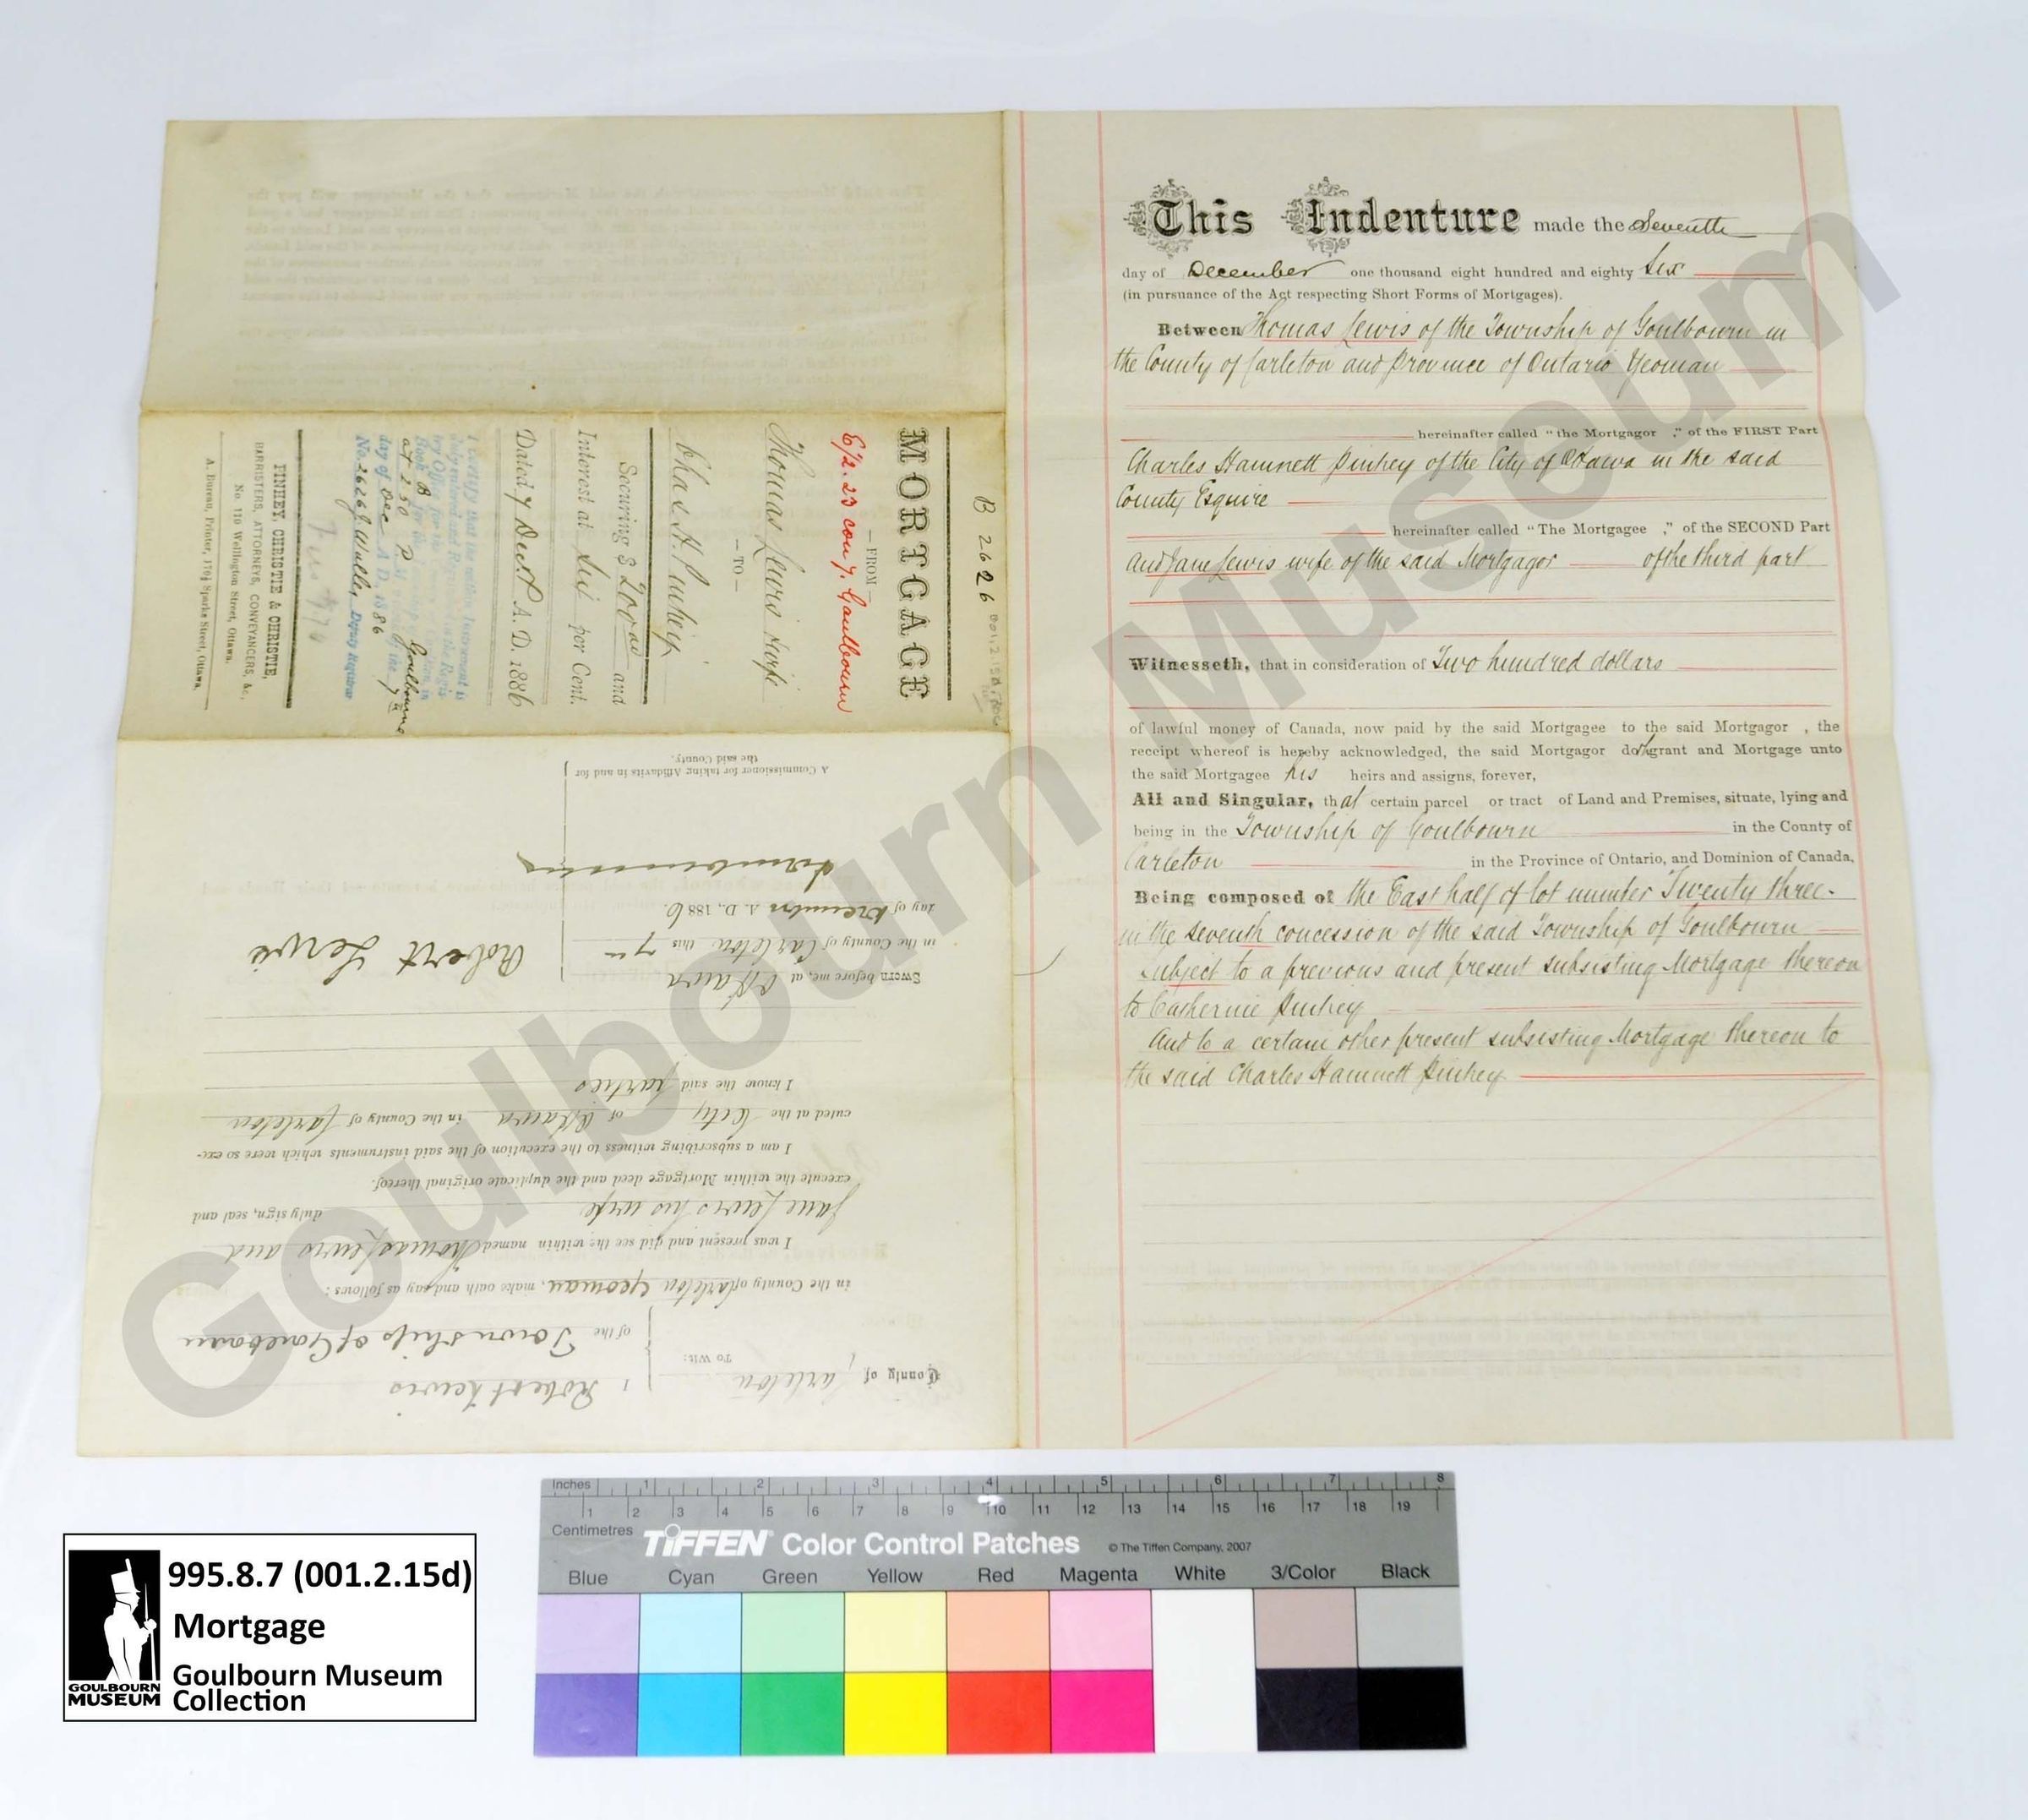 This Indenture made the Seventh
day of December one thousand eight hundred and eighty Six
(in pursuance of the Act respecting Short Forms of Mortgages).
Between Thomas Lewis of the Township of Goulbourn in
the County of Carleton and Province of Ontario Yeoman
hereinafter called "the Mortgagor ," of the FIRST Part
Charles Hamnett Pinhey of the City of Ottawa in the said
County Esquire
hereinafter called "The Mortgagee ," of the SECOND Part
And Jane Lewis wife of the said Mortgagor of the third part
Witnesseth, that in consideration of Two hundred dollars
of lawful money of Canada, now paid by the said Mortgagee to the said Mortgagor , the
receipt whereof is hereby acknowledged, the said Mortgagor doth grant and Mortgage unto
the said Mortgagee his heirs and assigns, forever,
All and Singular, that certain parcel or tract of Land and Premises, situate, lying and
being in the Township of Goulbourn in the County of
Carleton in the Province of Ontario, and Dominion of Canada,
Being composed of the East half of lot number Twenty three
in the seventh concession of the said Township of Goulbourn
subject to a previous and present subsisting Mortgage thereon
to Catherine Pinhey
And to a certain other present subsisting Mortgage thereon to
the said Charles Hamnett Pinhey
B 2626
MORTGAGE
E/2. 23 con 7. Goulbourn
—FROM—
Thomas Lewis & wife
—TO—
Chas H. Pinhey
Securing $ 200.00 and
Interest at Six per Cent.
Dated 7 Dect A. D. 1886
I certify that the within Instrument is
duly entered and Registered in the Regis-
try Office for the
Book B
at 2 50 P
Goulbourn
day of Dec A. D. 1886
No. 2626 Deputy Registrar
PINHEY, CHRISTIE & CHRISTIE,
BARRISTERS, ATTORNEYS, CONVEYANCERS, &c.
No. 110 Wellington Street, Ottawa.
A. Bureau, Printer, 179½ Sparks Street, Ottawa.
County of Carleton
To Wit:
I Robert Lewis
of the Township of Goulbourn
in the County of Carleton Yeoman, make oath and say as follows:
I was present and did see the within named Thomas Lewis and
Jane Lewis his wife duly sign, seal and
execute the within Mortgage deed and the duplicate original thereof.
I am a subscribing witness to the execution of the said instruments which were so exe-
cuted at the City of Ottawa in the County of Carleton
I know the said parties
Sworn before me, at Ottawa
in the County of Carleton this 7th
day of December A. D., 1886.
Robert Lewis
A Commissioner for taking Affidavits in and for
the said County.
Goulbourn Museum
Inches 1 2 3 4 5 6 7 8
1 2 3 4 5 6 7 8 9 10 11 12 13 14 15 16 17 18 19
Centimetres
TIFFEN Color Control Patches © The Tiffen Company, 2007
Blue Cyan Green Yellow Red Magenta White 3/Color Black
995.8.7 (001.2.15d)
Mortgage
Goulbourn Museum
Collection
GOULBOURN
MUSEUM